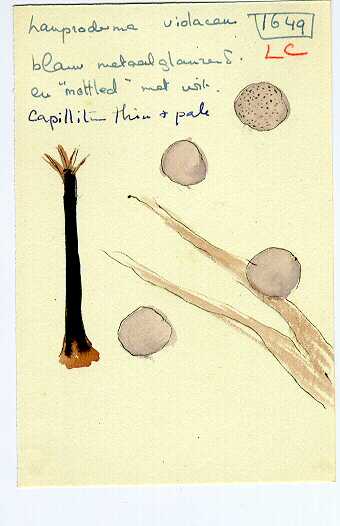 Lamproderma violaceum 1649
LC
blauw metaalglanzend.
en "mottled" met wit.
Capillitium thin + pale